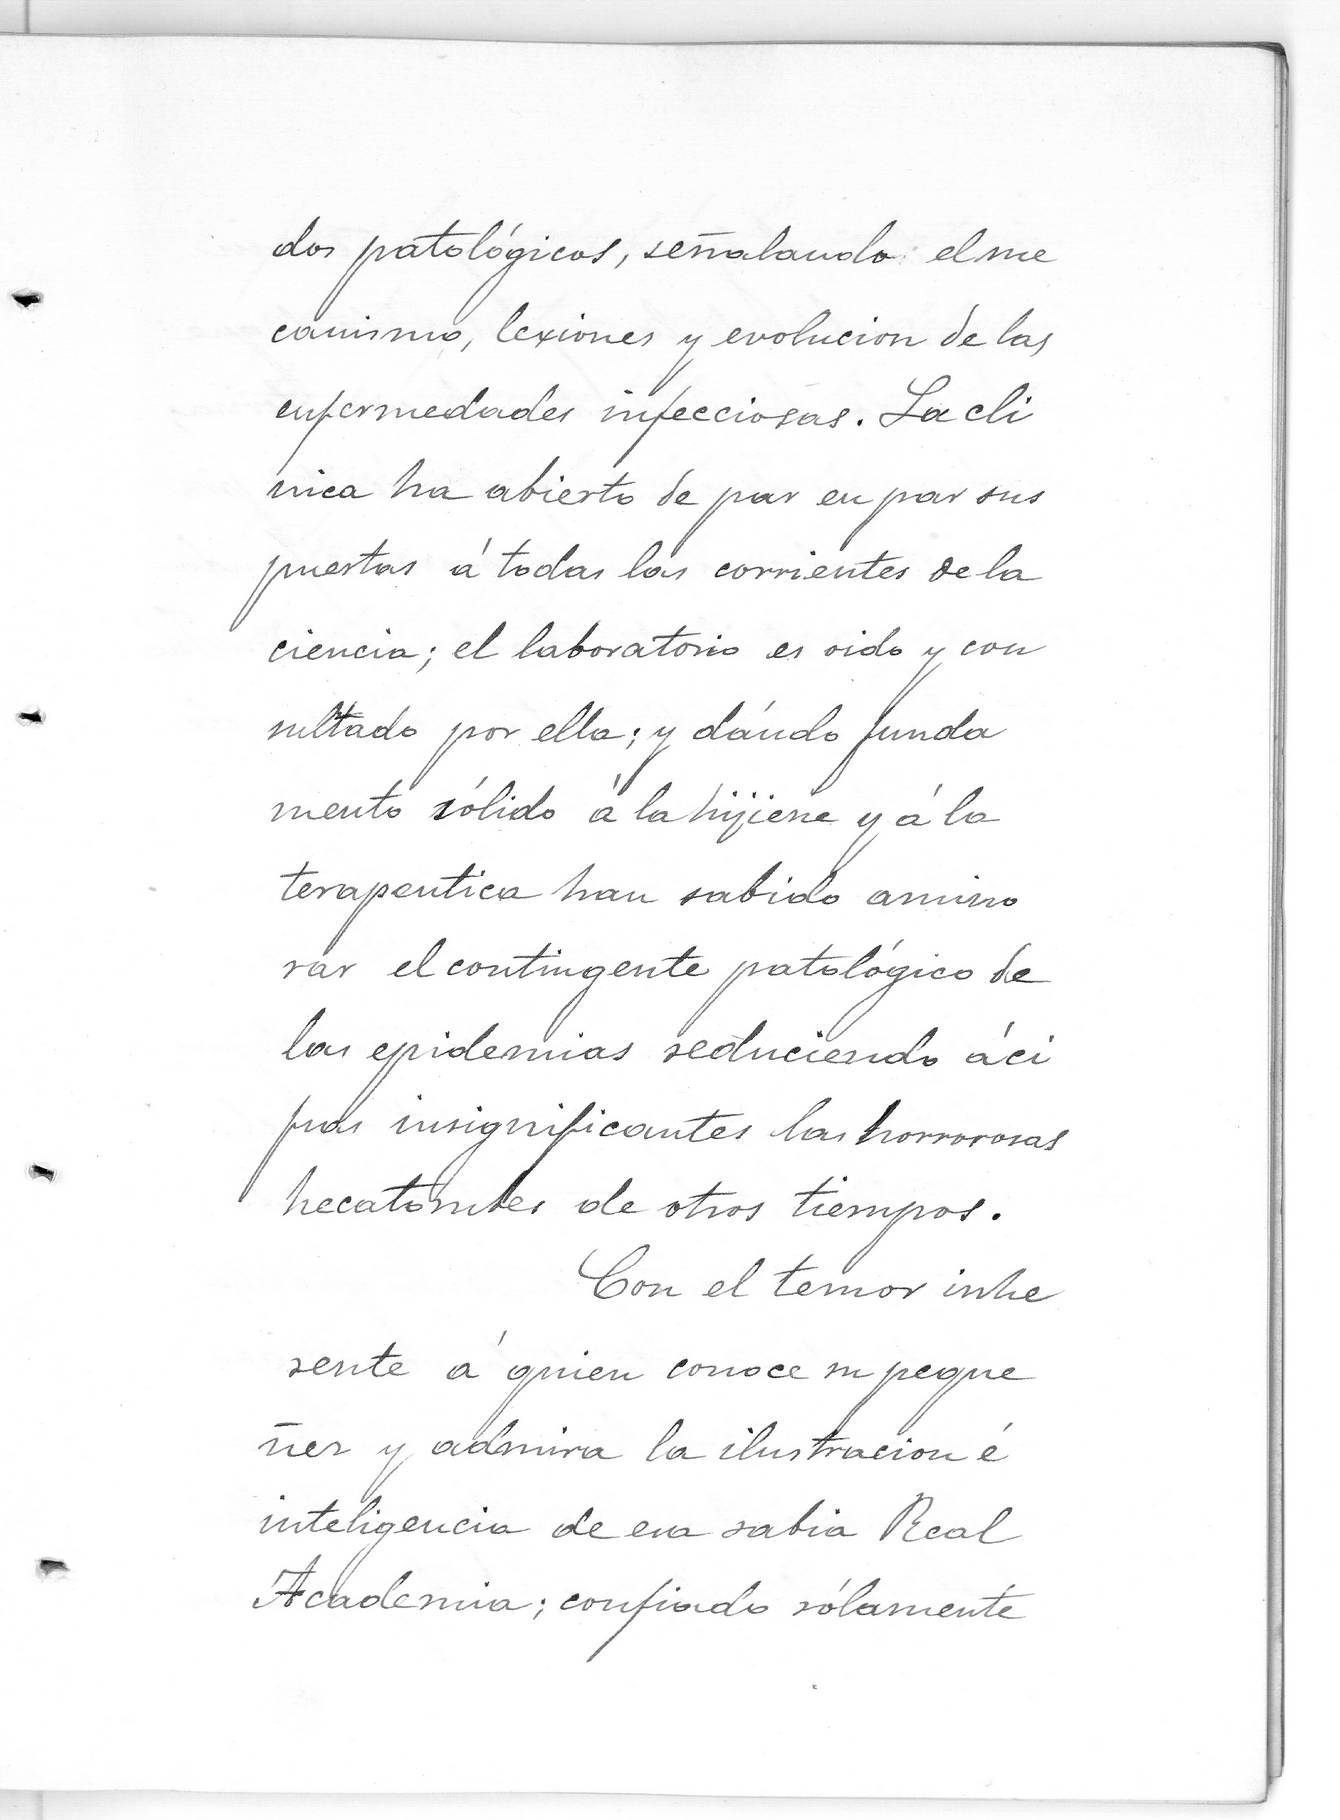 dos patológicos, señalando el me
canismo, lexiones y evolucion de las
enfermedades infecciosas. La cli
nica ha abierto de par en par sus
puertas á todas las corrientes de la
ciencia; el laboratorio es oido y con
sultado por ella; y dándo funda
mento sólido á la hijiene y á la
terapeutica han sabido amino
rar el contingente patológico de
las epidemias reduciendo á ci
fras insignificantes las horrorosas
hecatombes de otros tiempos.
Con el temor inhe
rente á quien conoce su peque
ñez y admira la ilustracion é
inteligencia de esa sabia Real
Academia; confiado sólamente